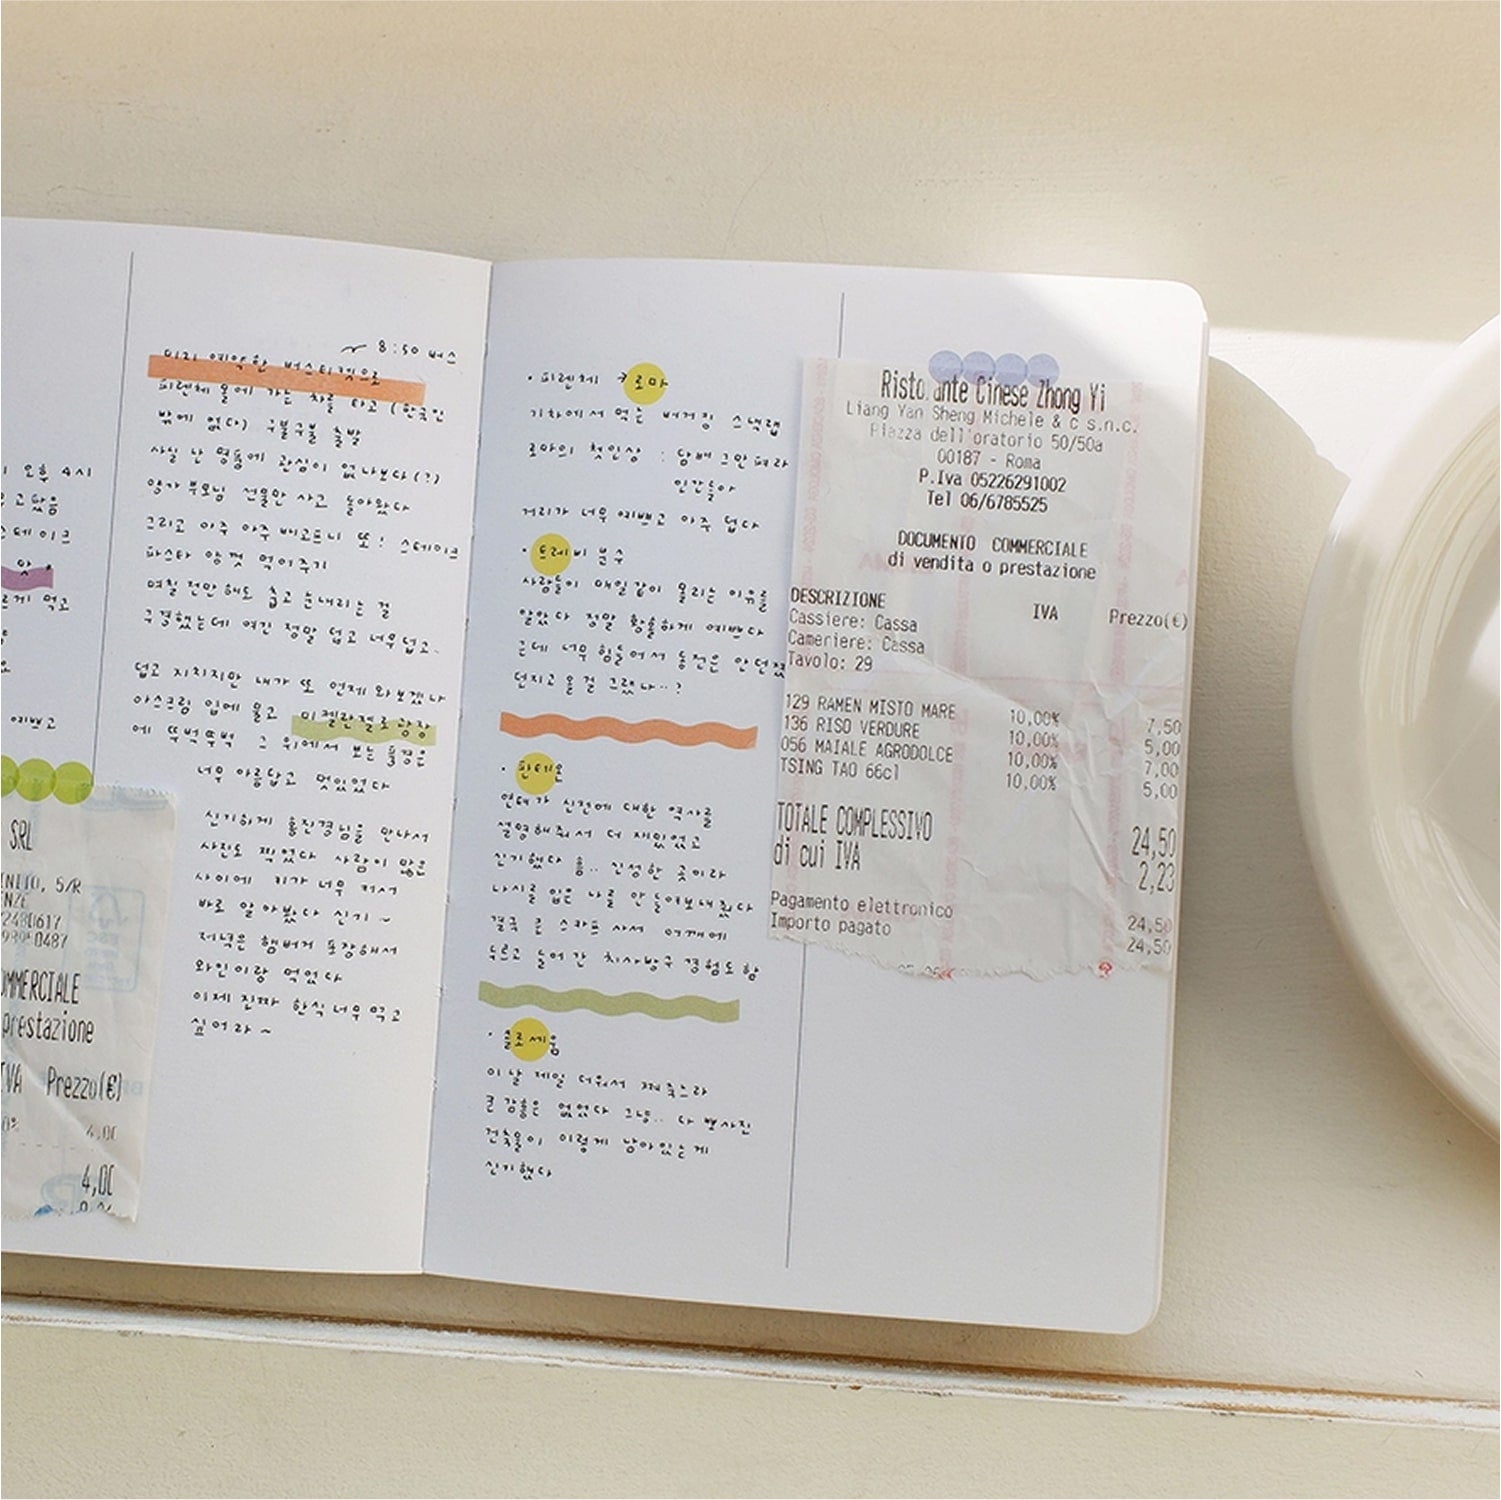 오후 4시
고 왔음
스테이크
맛
게 먹고
예쁘고
SRL
5/R
22480617
0487
COMMERCIALE
prestazione
IVA Prezzo(€)
4,00
4,00
8:50 버스
미리 예약한 버스티켓으로
피렌체 몰에 가는 차를 타고 (한국인
밖에 없다) 구불구불 출발
사실 난 명품에 관심이 없나보다(?)
양가부모님 선물만 사고 돌아왔다
그리고 아주 아주 배고프니 또! 스테이크
파스타 양껏 먹어주기
며칠 전만해도 춥고 눈내리는 걸
구경했는데 여긴 정말 덥고 너무덥고..
덥고 지치지만 내가 또 언제 와보겠나
아스크림 입에 물고 미켈란젤로 광장
에 뚜벅뚜벅 그 위에서 보는 풍경은
너무 아름답고 멋있었다
신기하게 홍진경님을 만나서
사진도 찍었다 사람이 많은
사이에 키가 너무 커서
바로 알아봤다 신기~
저녁은 햄버거 포장해서
와인이랑 먹었다
이제 진짜 한식 너무 먹고
싶어라~
· 피렌체 → 로마
기차에서 먹는 버거킹 스낵랩
로마의 첫인상 : 담배 그만 펴라
인간들아
거리가 너무 예쁘고 아주 덥다
· 트레비 분수
사람들이 매일같이 몰리는 이유를
알았다 정말 황홀하게 예쁘다
근데 너무 힘들어서 동전은 안던졌
던지고 올걸 그랬나..?
· 판테온
연태가 신전에 대한 역사를
설명해줘서 더 재밌었고
신기했다 흠.. 신성한 곳이라
나시를 입은 나를 안 들여보내줬다
결국 큰 스카프 사서 어깨에
두르고 들어간 치사빵구 경험도 함
· 콜로세움
이날 제일 더워서 쪄죽느라
큰 감흥은 없었다 그냥.. 다 뽀사진
건축물이 이렇게 남아있는게
신기했다
Ristorante Cinese Zhong Yi
Liang Yan Sheng Michele & c s.n.c.
Piazza dell'oratorio 50/50a
00187 - Roma
P.Iva 05226291002
Tel 06/6785525
DOCUMENTO COMMERCIALE
di vendita o prestazione
DESCRIZIONE IVA Prezzo(€)
Cassiere: Cassa
Cameriere: Cassa
Tavolo: 29
129 RAMEN MISTO MARE 10,00% 7,50
136 RISO VERDURE 10,00% 5,00
056 MAIALE AGRODOLCE 10,00% 7,00
TSING TAO 66cl 10,00% 5,00
TOTALE COMPLESSIVO 24,50
di cui IVA 2,23
Pagamento elettronico 24,50
Importo pagato 24,50